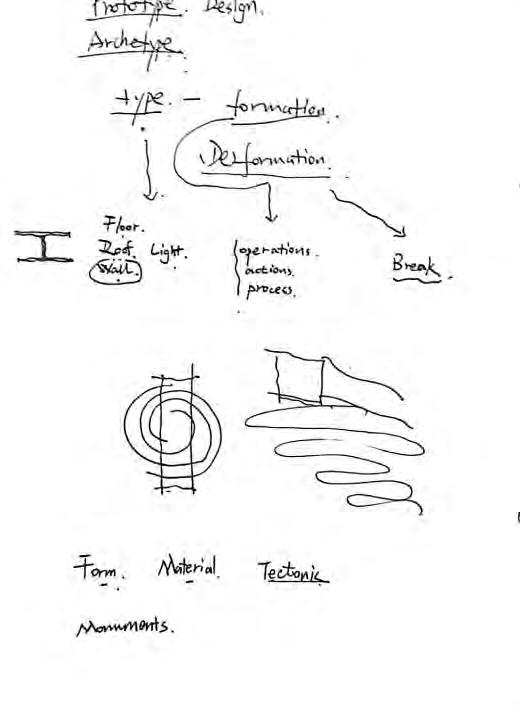 Prototype. Design.
Archetype.
type. — formation.
Deformation.
Floor.
Roof. Light.
Wall.
operations.
actions.
process.
Break.
Form. Material. Tectonic
Monuments.